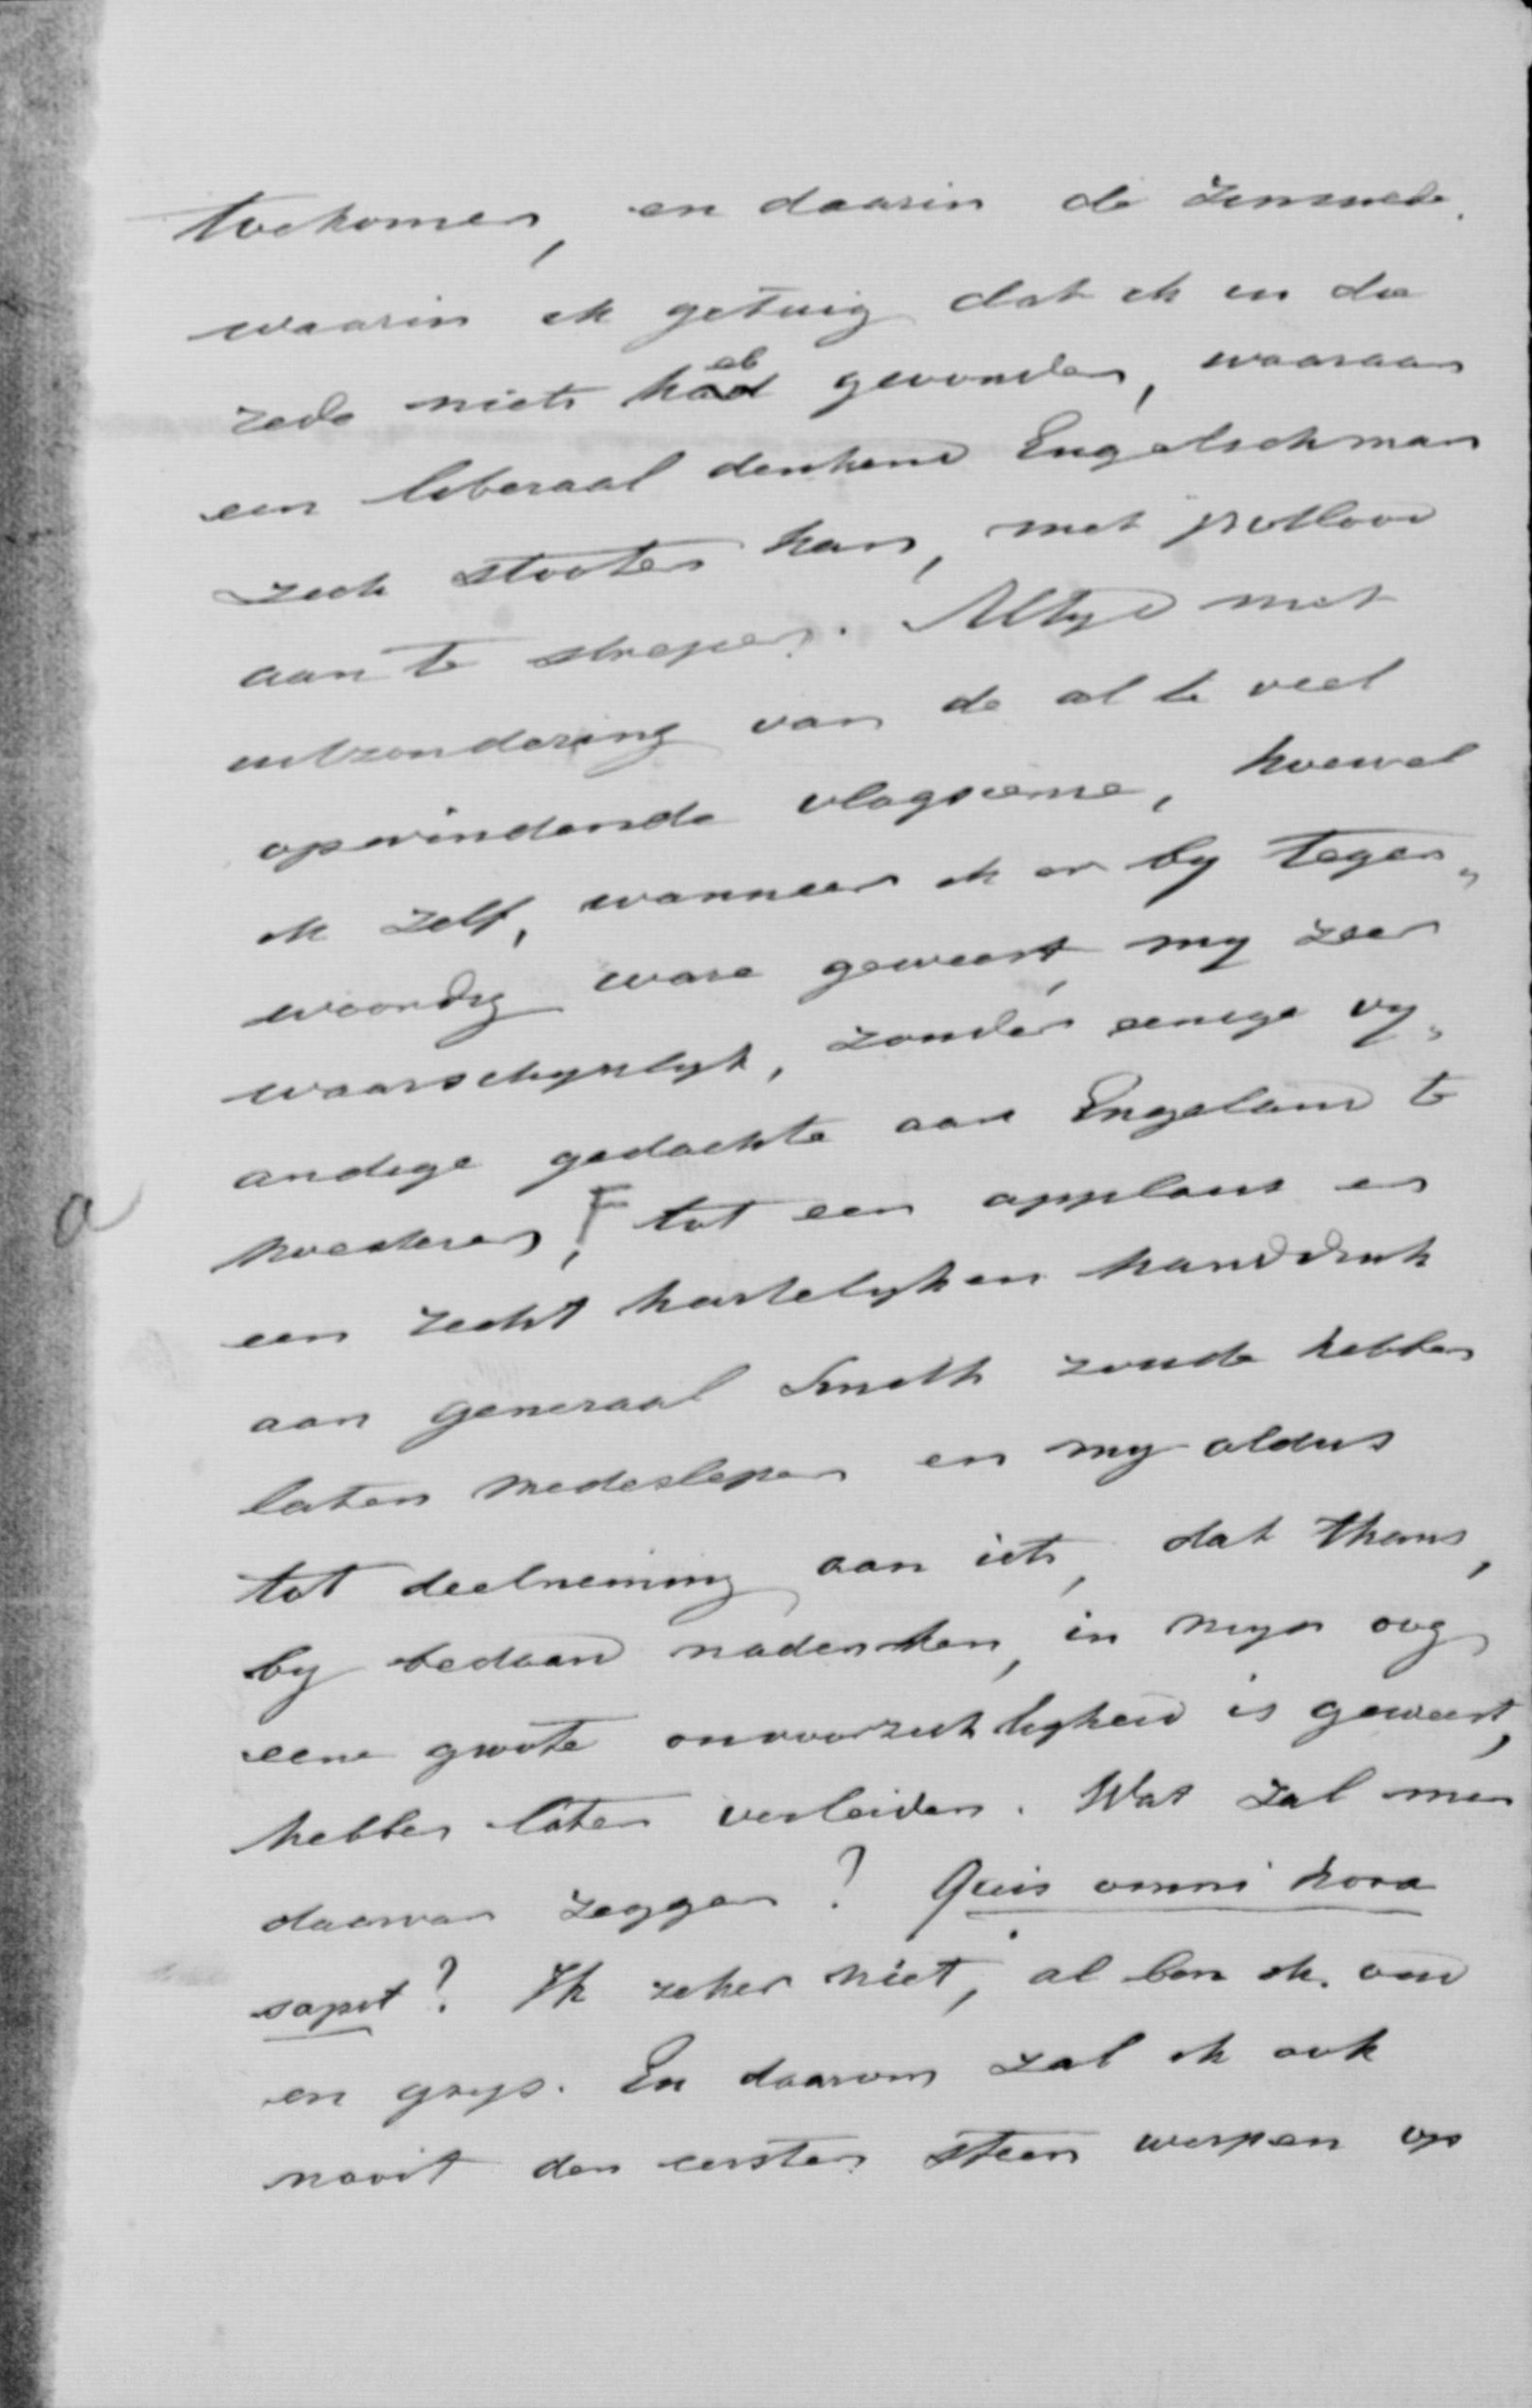 toekomen, en daarin de zinsnede
waarin ik getuig dat ik in die
rede niets heb gevonden, waaraan
een liberaal denkend Engelschman
zich stooten kan, met potlood
aan te strepen. Altyd met
uitzondering van de al te veel
opwindende vlagscène, hoewel
ik zelf, wanneer ik er by tegen„
woordig ware geweest, my zeer
waarschynlyk, zonder eenige vy„
andige gedachte aan Engeland te
koesteren, tot een applaus en
een recht hartelyken handdruk
aan generaal Smith zoude hebben
laten medeslepen en my aldus
tot deelneming aan iets, dat thans,
by bedaard nadenken, in myn oog
eene groote onvoorzichtigheid is geweest,
hebben laten verleiden. Wat zal men
daarvan zeggen? Quis omni hora
sapit? Ik zeker niet, al ben ik oud
en grys. En daarom zal ik ook
nooit den eersten steen werpen op
a